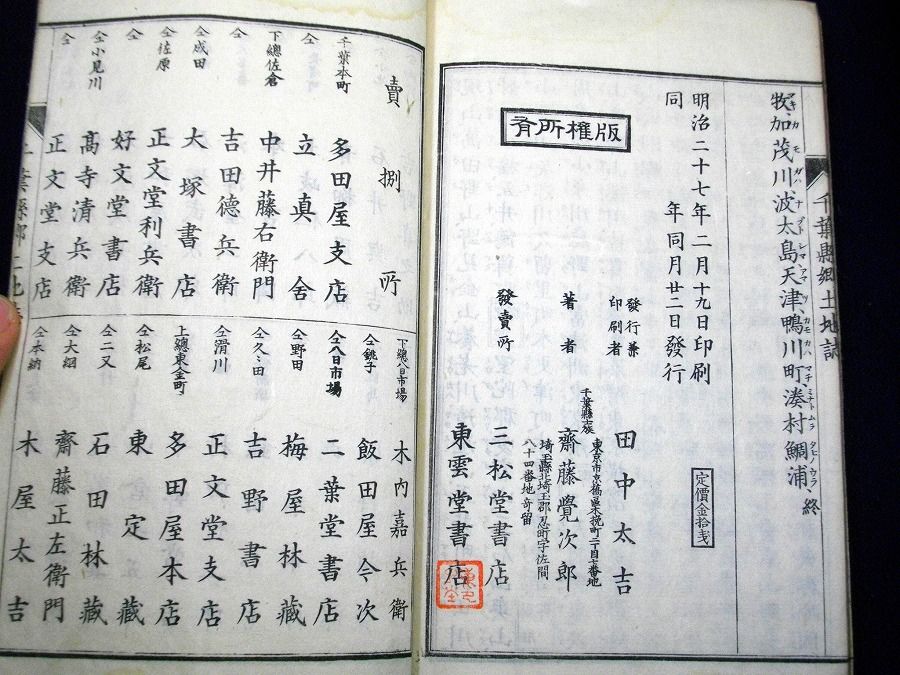 千葉縣郷土地誌
牧、加茂川、波太島、天津、鴨川町、湊村、鯛浦、終
版權所有
明治二十七年二月十九日印刷
同年同月廿二日發行
定價金拾弐
發行兼印刷者
東京市京橋區木挽町二丁目十番地
田中太吉
著者
千葉縣士族
齋藤覺次郎
埼玉縣北埼玉郡忍町字佐間八十四番地寄留
發賣所
三松堂書店
東雲堂書店
賣捌所
千葉本町 多田屋支店
仝 立真舎
下總佐倉 中井藤右衛門
仝 吉田德兵衛
仝成田 大塚書店
仝佐原 正文堂利兵衛
仝 好文堂書店
仝小見川 高寺清兵衛
仝 正文堂支店
下總八日市場 木内嘉兵衛
仝銚子 飯田屋今次
仝八日市場 二葉堂書店
仝野田 梅屋林藏
仝久々田 吉野書店
仝滑川 正文堂支店
上總東金町 多田屋本店
仝松尾 東定藏
仝二又 石田林藏
仝大網 齋藤正左衛門
仝本納 木屋太吉